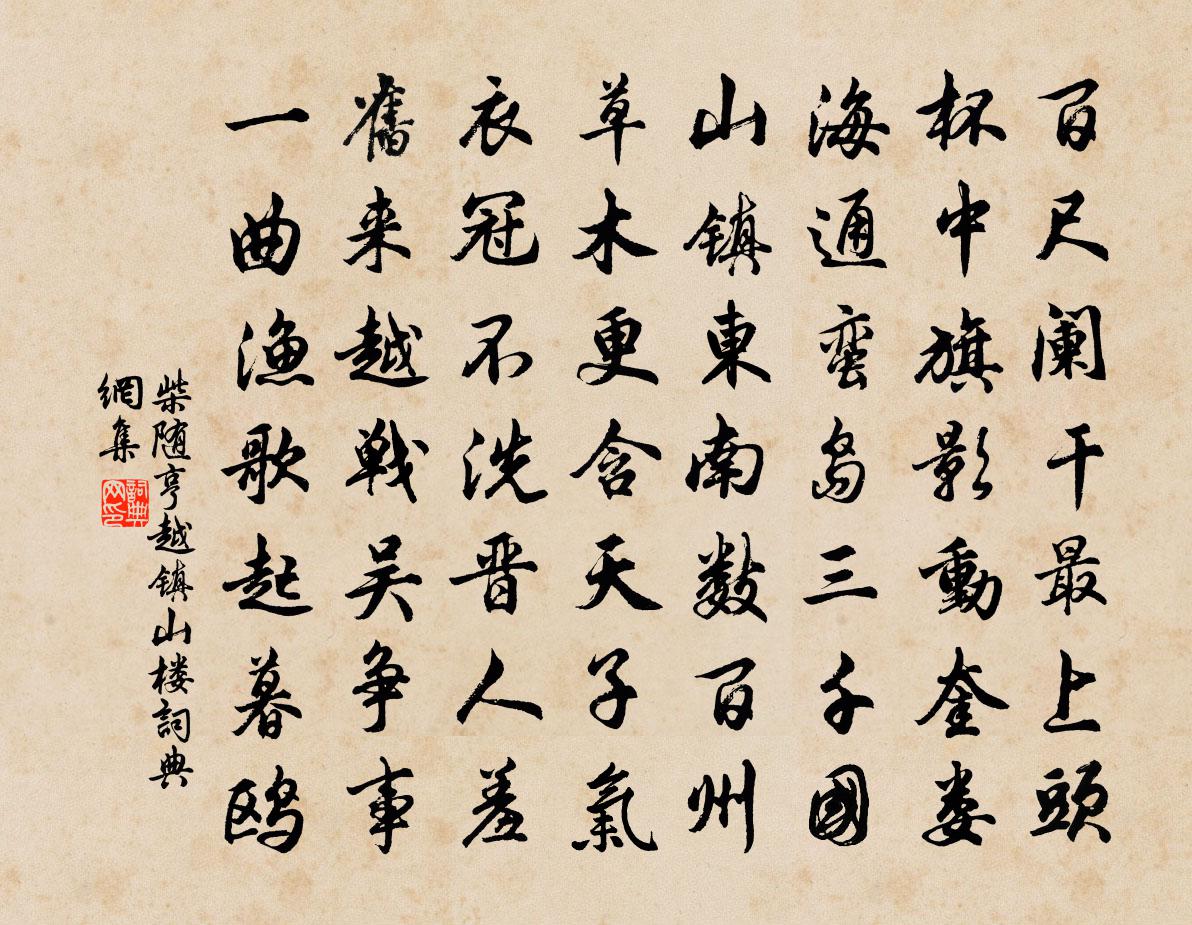 百尺阑干最上頭
杯中旗影動奎婁
海通蛮島三千國
山镇東南数百州
草木更含天子氣
衣冠不洗晋人羞
舊来越戰吴争事
一曲漁歌起暮鸥
柴随亨越镇山楼詞典
網集
詞典
网印